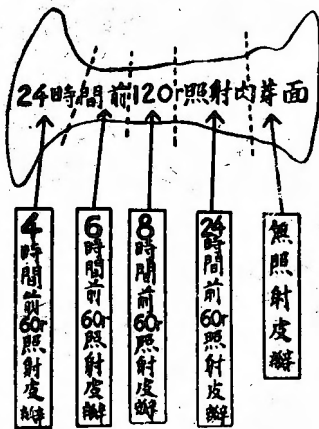 24時間前120r照射肉芽面
4時間前60r照射皮瓣
6時間前60r照射皮瓣
8時間前60r照射皮瓣
24時間前60r照射皮瓣
無照射皮瓣